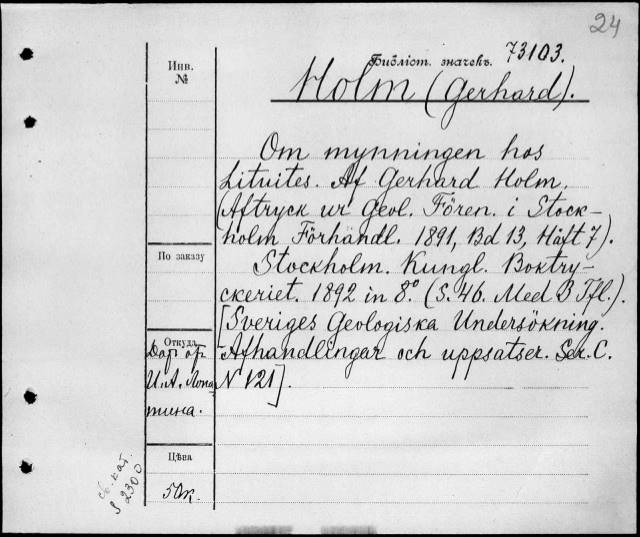 24
Библіот. значекъ. 73103.
Holm (Gerhard).
Инв.
№
Om mynningen hos
Lituites. Af Gerhard Holm.
(Aftryck ur Geol. Fören. i Stock-
holm Förhandl. 1891, Bd 13, Häft 7).
По заказу
Stockholm. Kungl. Boktry-
ckeriet. 1892 in 8.° (S. 46. Med 3 Tfl.).
[Sveriges Geologiska Undersökning.
Откуда
Afhandlingar och uppsatser. Ser. C.
Дар от
И. А. Лопа
N 121].
тина.
Цѣна
50к.
св. кат.